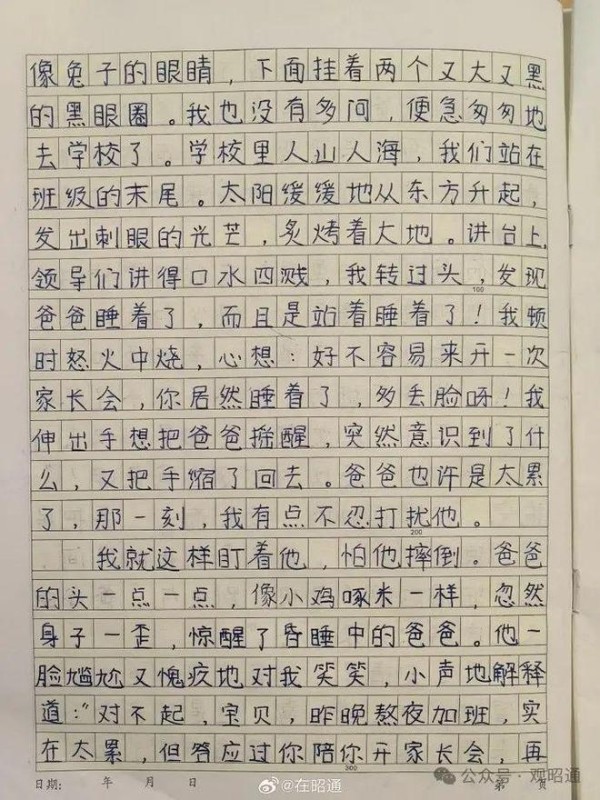 像兔子的眼睛，下面挂着两个又大又黑
的黑眼圈。我也没有多问，便急匆匆地
去学校了。学校里人山人海，我们站在
班级的末尾。太阳缓缓地从东方升起，
发出刺眼的光芒，炙烤着大地。讲台上，
领导们讲得口水四溅，我转过头，发现
100
爸爸睡着了，而且是站着睡着了！我顿
时怒火中烧，心想：好不容易来开一次
家长会，你居然睡着了，多丢脸呀！我
伸出手想把爸爸摇醒，突然意识到了什
么，又把手缩了回去。爸爸也许是太累
了，那一刻，我有点不忍打扰他。
200
我就这样盯着他，怕他摔倒。爸爸
的头一点一点，像小鸡啄米一样，忽然
身子一歪，惊醒了昏睡中的爸爸。他一
脸尴尬又愧疚地对我笑笑，小声地解释
道：“对不起，宝贝，昨晚熬夜加班，实
在太累，但答应过你陪你开家长会，再
300
日期： 年 月 日 第 页
@在昭通
公众号·观昭通